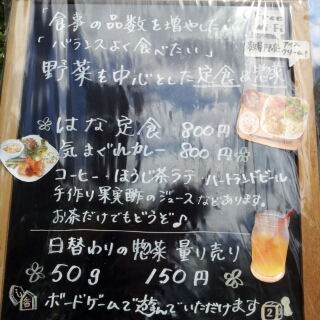 「食事の品数を増やしたい」
「バランスよく食べたい」
Free
Wi-Fi
アイスクリーム!
野菜を中心とした定食&惣菜
はな定食 800円
気まぐれカレー 800円
コーヒー・ほうじ茶ラテ・ハートランドビール
手作り果実酢のジュースなどあります。
お茶だけでもどうぞ♪
日替わりの惣菜 量り売り
50g 150円
ボードゲームで遊んでいただけます